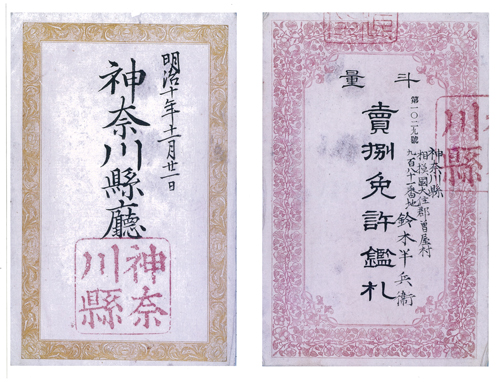 明治十年十二月廿一日
神奈川縣廳
神奈
川縣
斗量
賣捌免許鑑札
第一〇二九號
神奈川縣
相模國大住郡曽屋村
九百八十一番地
鈴木半兵衛